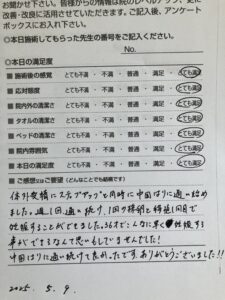 お聞かせ下さい。皆様からの情報は院のレベルアップ、更に
改善・改良に活用させていただきます。ご記入後、アンケート
ボックスにお入れ下さい。
◇本日施術してもらった先生の番号をご記入ください。
No.
◇本日の満足度
施術後の感覚 とても不満 ・ 不満 ・ 普通 ・ 満足 ・ とても満足
応対態度 とても不満 ・ 不満 ・ 普通 ・ 満足 ・ とても満足
院内外の清潔 とても不満 ・ 不満 ・ 普通 ・ 満足 ・ とても満足
タオルの清潔 とても不満 ・ 不満 ・ 普通 ・ 満足 ・ とても満足
ベッドの清潔さ とても不満 ・ 不満 ・ 普通 ・ 満足 ・ とても満足
院内雰囲気 とても不満 ・ 不満 ・ 普通 ・ 満足 ・ とても満足
本日の満足度 とても不満 ・ 不満 ・ 普通 ・ 満足 ・ とても満足
◇ご感想又はご要望(どんなことでも結構です)
体外受精にステップアップと同時に中国はりに通い始め
ました。週1回通い続け、1回の採卵と移植1回目で
妊娠することができました。36才でこんなに早く妊娠する
事ができるなんて思いもしていませんでした!
中国はりに通い続けて良かったです。ありがとうございました!!
2025. 5. 9.